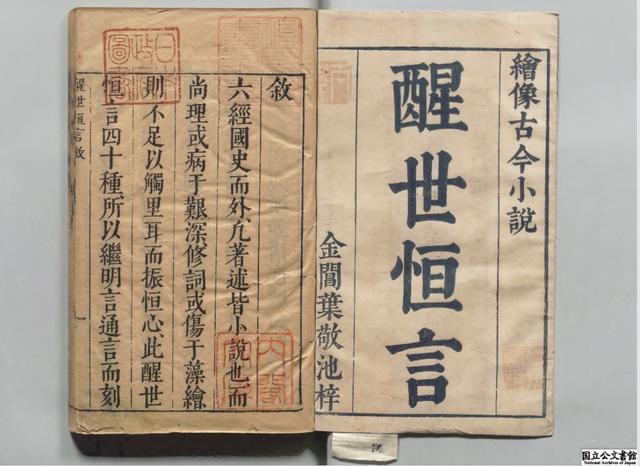 繪像古今小說
醒世恒言
金閶葉敬池梓
敘
六經國史而外凡著述皆小說也而
尚理或病于艱深修詞或傷于藻繪
則不足以觸里耳而振恒心此醒世
恒言四十種所以繼明言通言而刻
醒世恒言敘
日本政府圖書
国立公文書館
National Archives of Japan